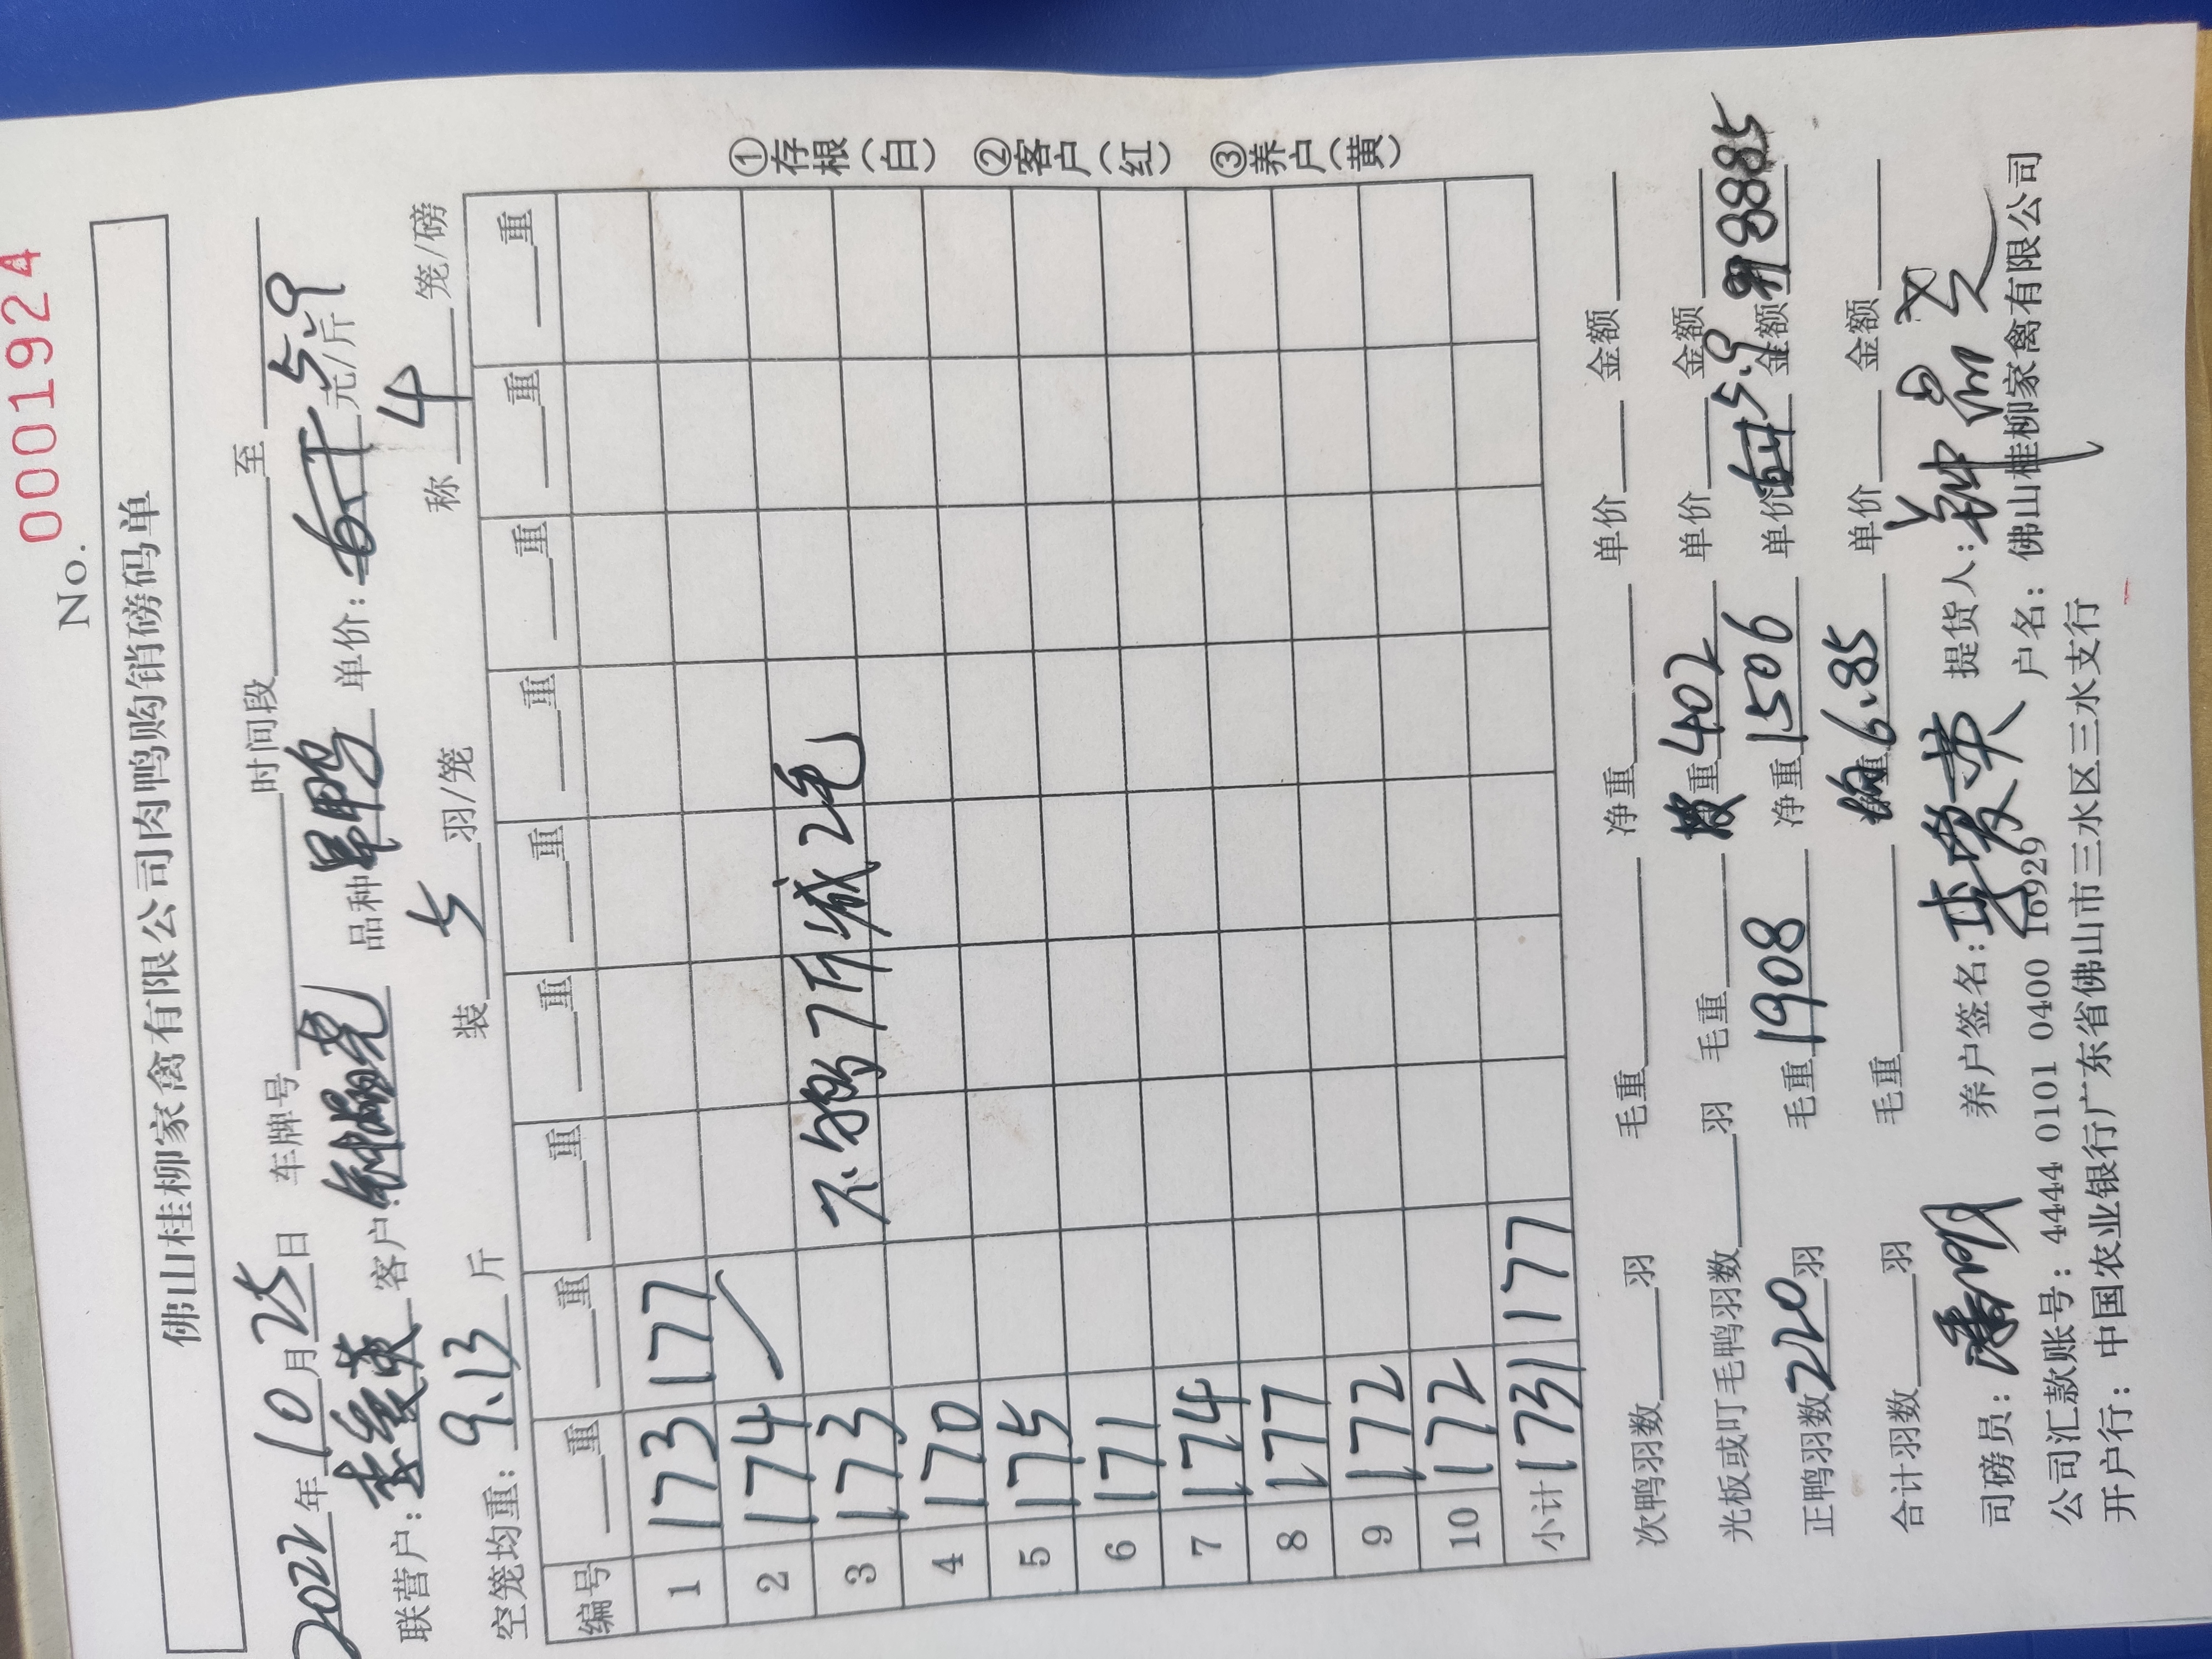 No. 0001924
佛山桂柳家禽有限公司肉鸭购销磅码单
2022年10月25日 车牌号 时间段 至
联营户: 客户: 品种 单价: 元/斤 5.9
空笼均重: 9.13 斤 装 5 羽/笼 称 4 笼/磅
编号 重 重 重 重 重 重 重 重 重
1 173 177
2 174
3 173 不够7斤减2毛
4 170
5 175
6 171
7 174
8 177
9 172
10 172
小计 1731 177
①存根(白) ②客户(红) ③养户(黄)
次鸭羽数 羽 毛重 净重 单价 金额
光板或叮毛鸭羽数 羽 毛重 重 402 单价 金额
正鸭羽数 220 羽 毛重 1908 净重 1506 单价 5.9 金额 8885
合计羽数 羽 毛重 重 6.85 单价 金额
司磅员: 养户签名: 提货人:
公司汇款账号: 4444 0101 0400 16929 户名: 佛山桂柳家禽有限公司
开户行: 中国农业银行广东省佛山市三水区三水支行